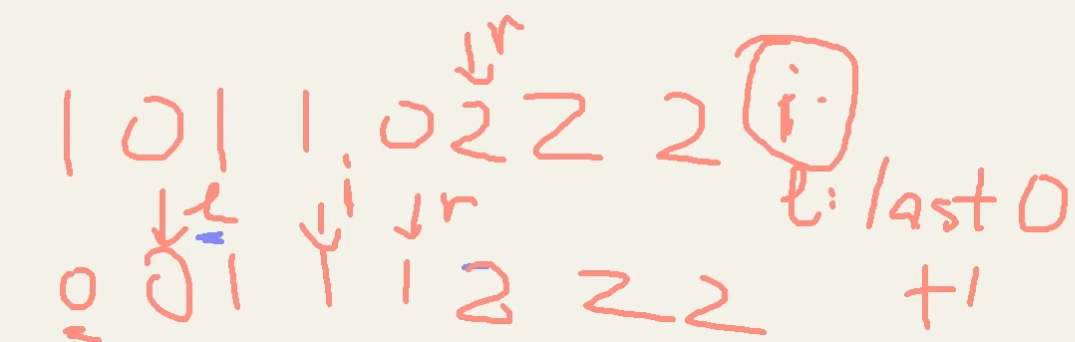 r
1 0 1 1 0 2 2 2 i
l i r l: last 0
0 0 1 1 1 2 2 2 +1